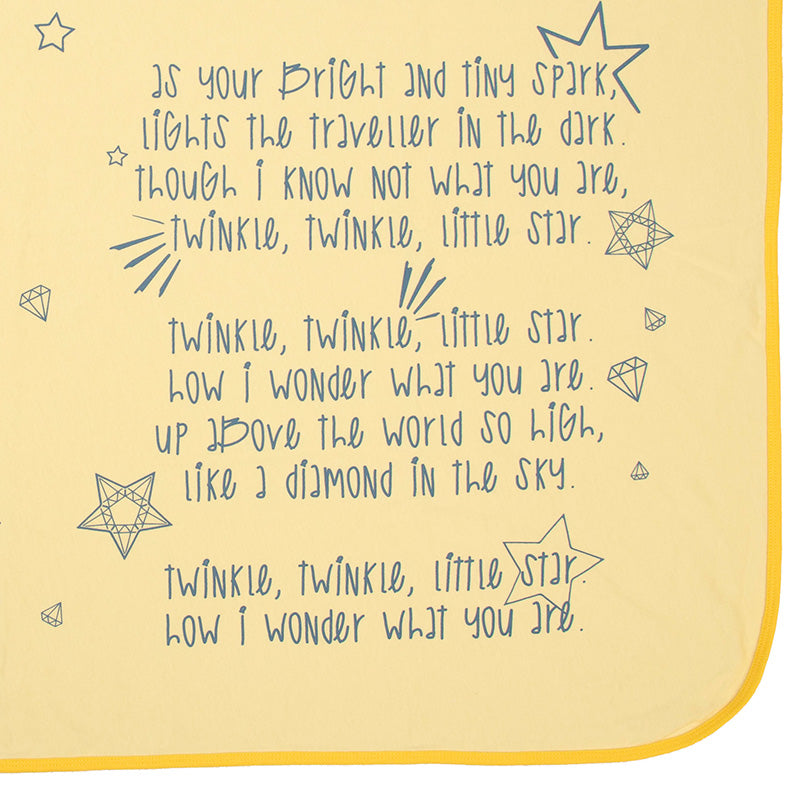 as your Bright and tiny spark,
lights the traveller in the dark.
though i know not what you are,
twinkle, twinkle, little star.
twinkle, twinkle, little star.
how i wonder what you are.
up above the world so high,
like a diamond in the sky.
twinkle, twinkle, little star.
how i wonder what you are.